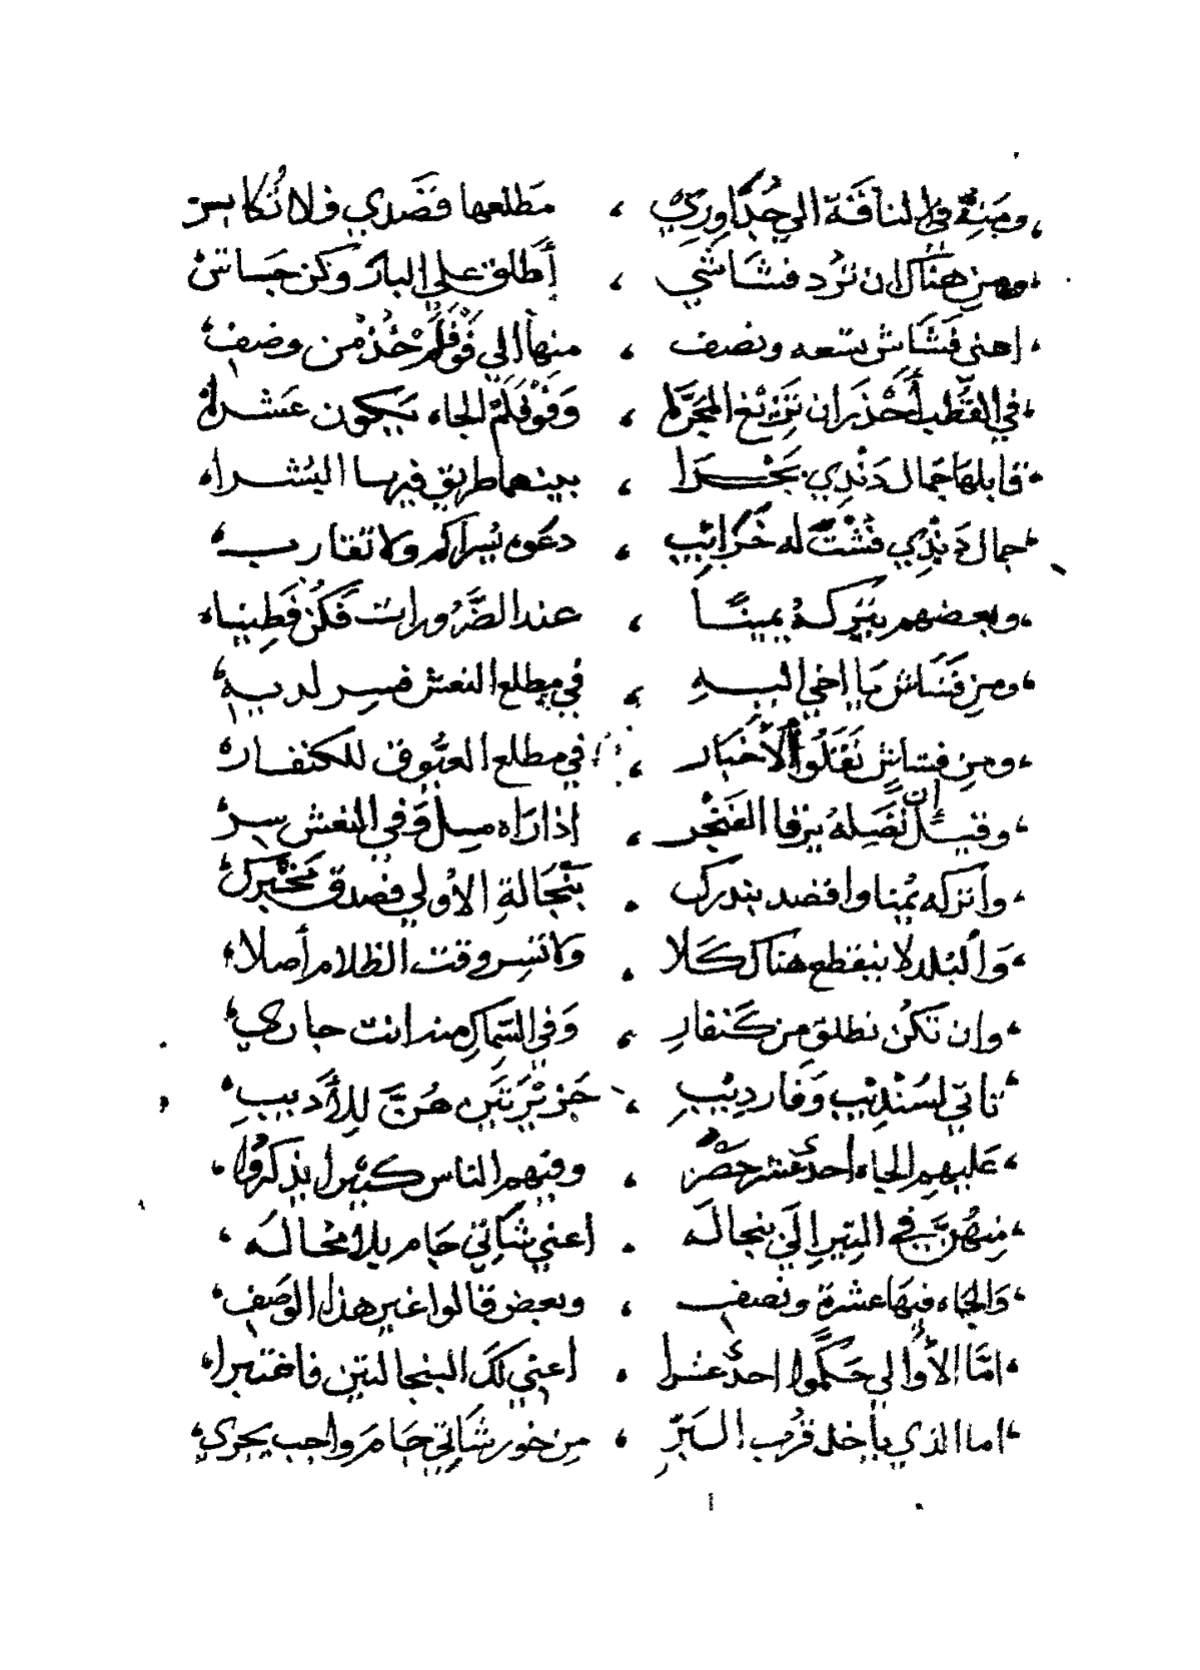 ومنه في الناقة الي حُدَّاوِري ، مَطلعها قَصْدي فلا تُكابر
ومن هناك ان تُرد فشَاشي ، أطلق علي البار وكن جَساس
اعني فشَاش تسعه ونصف ، منها الي فَوْفَلَمْ خُذْ من وصف
في القُطْب أحْذَر ان تَزِيغ المجرَّا ، وَفَوْفَلَمْ الجاه يكون عَشْرا
قابلها جمال دَنْدِي بحْرَا ، بينهما طريق فيها اليُسْرا
جمال دَنْدِي فشْتٌ له خَرَائِب ، دعَوه يُسراكم ولا تقارب
وبعضهم يتركه يمينًا ، عند الضَّرُورات فَكُنْ فَطِينا
ومن فشَاش يا اخي البيه ، في مطلع النعش فسِر لديه
ومن فشاش نَقَلُوا الأخْبار ، في مطلع العَيُّوق للكنفار
وقيل ان نصله بزقا الغنْجر ، اذا رَاه ميل وَفي النعش سِرْ
واتركه يُمنا واقصد بندرك ، بنْجَالةِ الأولي فصدق مخْبِرك
وَالبُلد لا ينقطع هناك كَلا ، ولا تسِر وقت الظلام أصلا
وان تَكُن تطلق من كَنفارِ ، وَفي السِّماكِ منه انت جاري
تاتي لسُنْدِيْب وَفَارديْب ، جَزيْرَتَين هُنَّ للأديبِ
عَليهم الجاه أحدَ عشر حصْرْ ، وفيهم الناس كثيرا يذكرُوا
منهُنَّ في التِيرِ الَي بنجالَه ، اعني شَاتِي جَام بلا مُحالَه
وَالجَاه فيهَا عشرة ونصف ، وبعض قالوا غير هذا الوَصف
امَّا الأوَّالي حَكَمُوا احدَ عشرا ، اعني لَكَ البنجالتين فاختبرا
اما الذي ياخل قُرب البَرّ ، من خور شَاتِي جَامَ واجب يجري